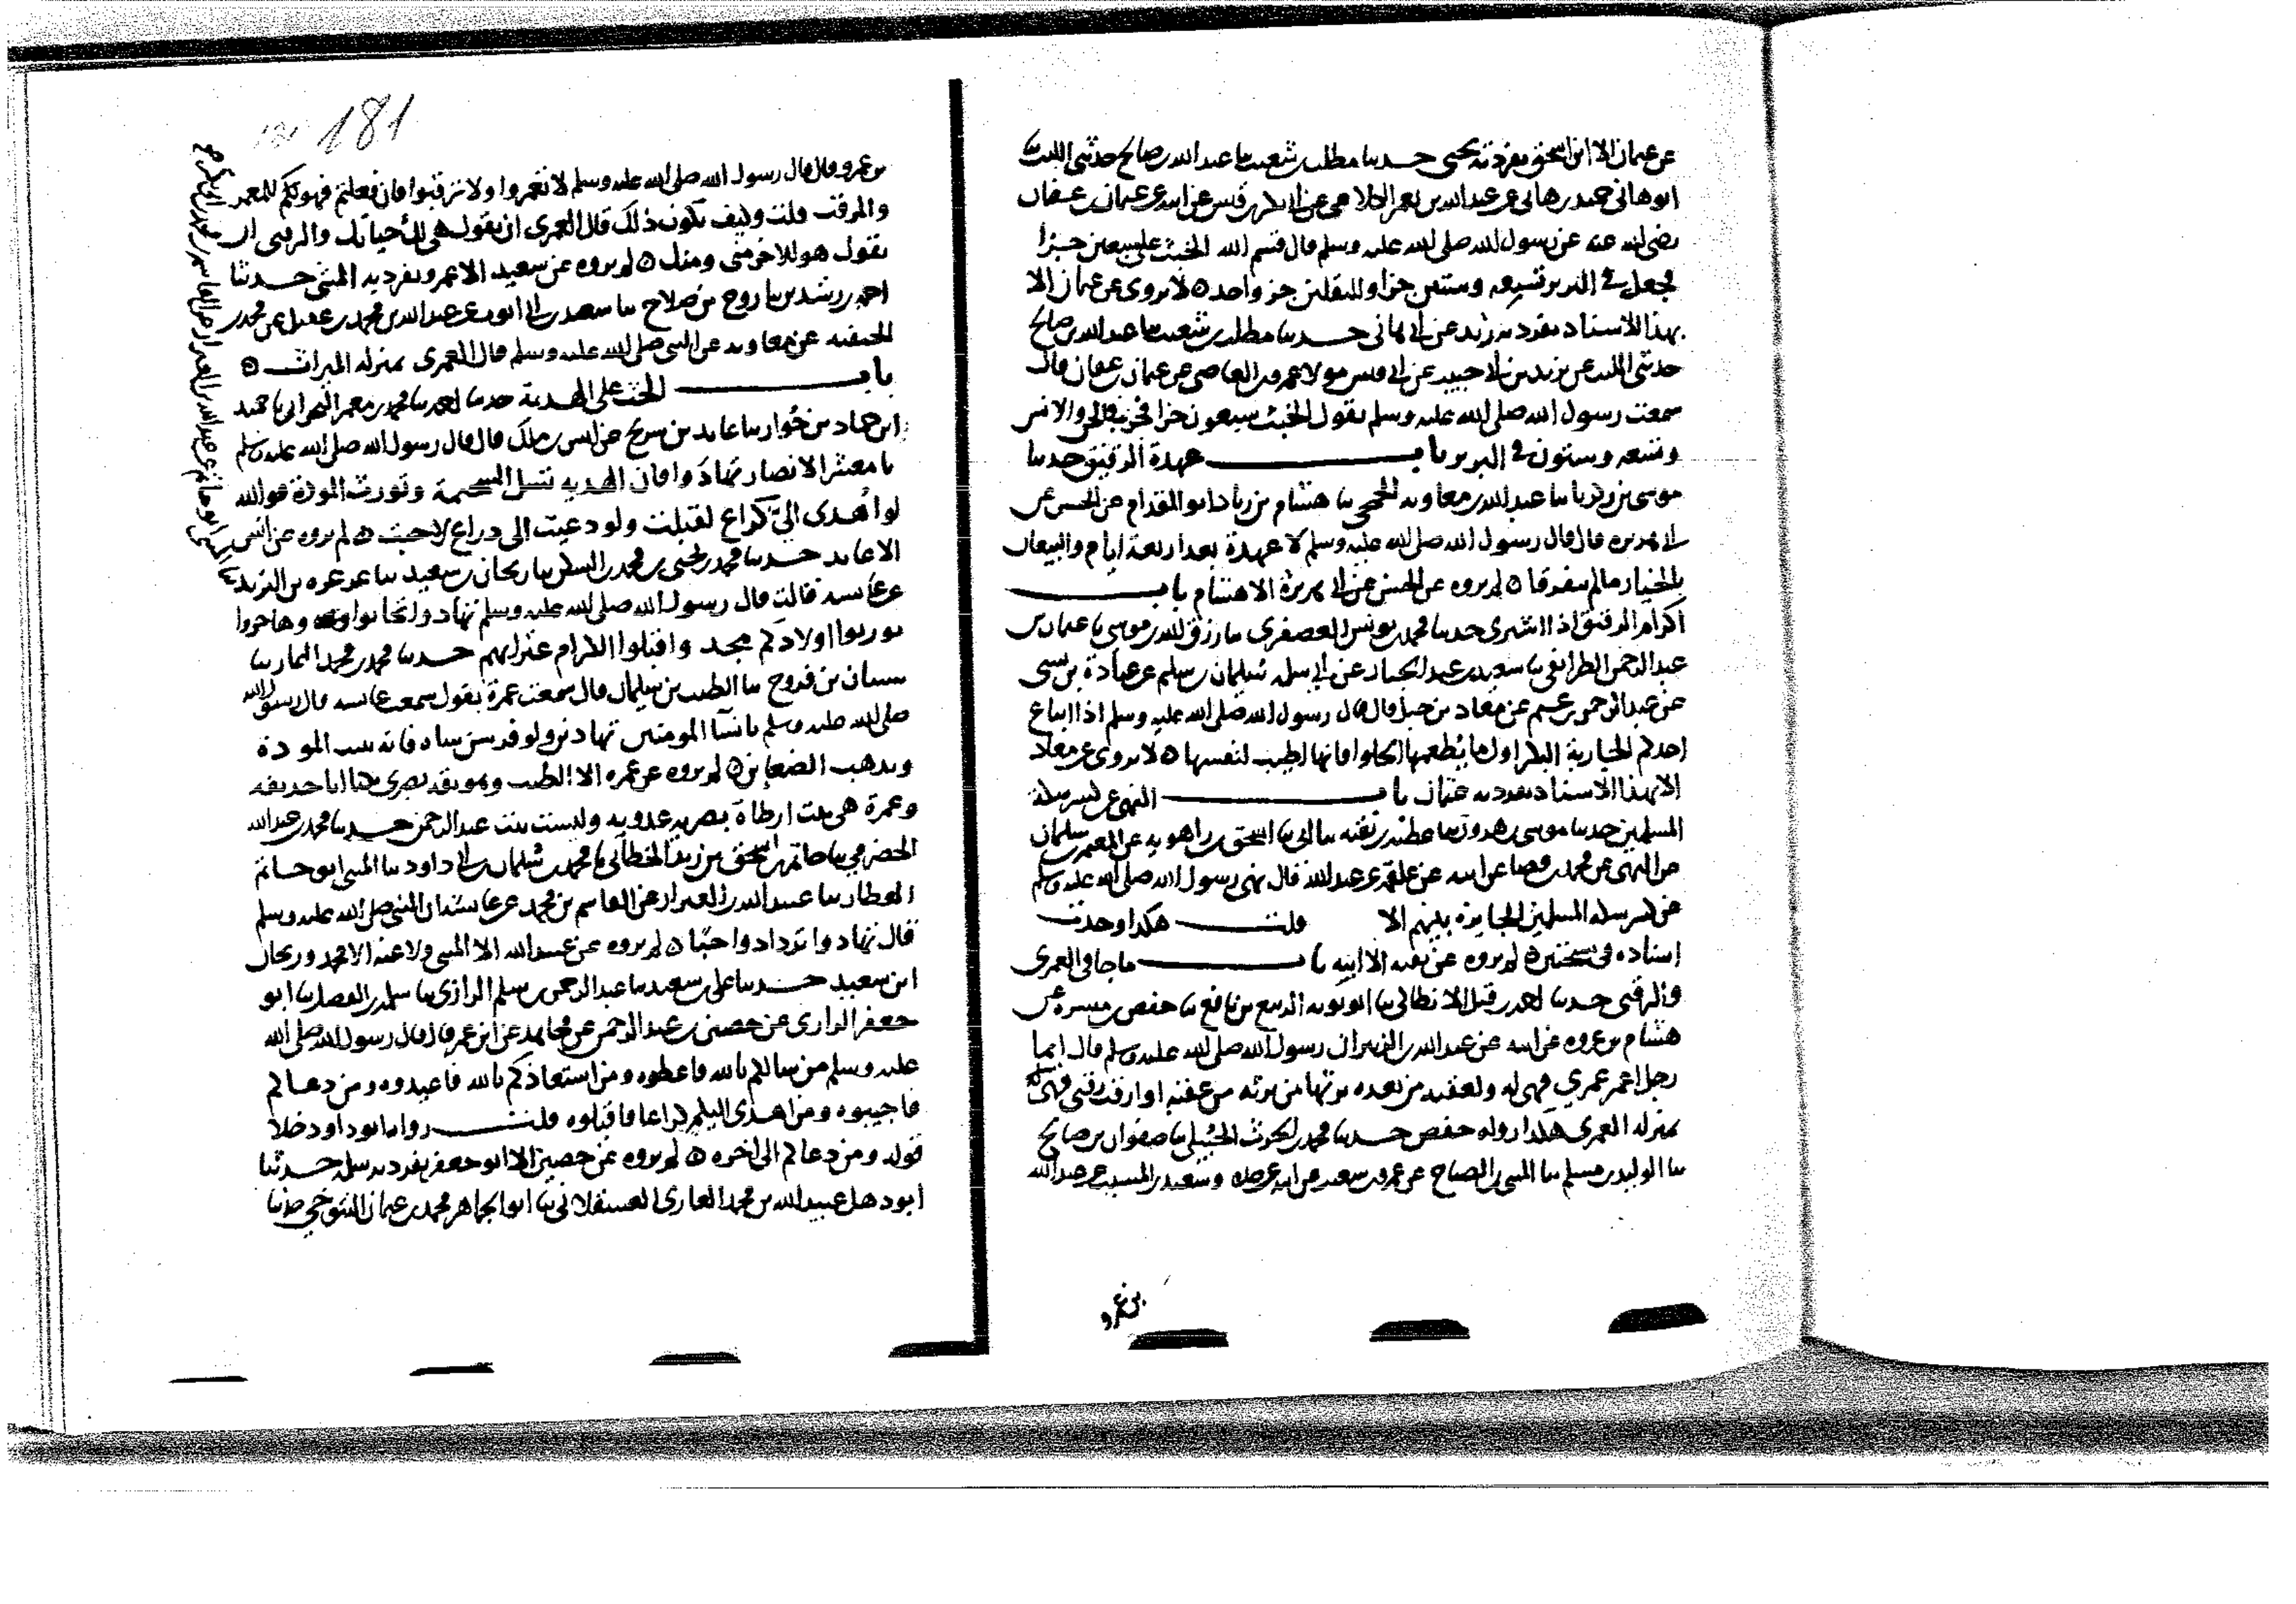 عن عثمان الا ابن اسحق تفرد به يحيى حدثنا مطلب بن شعيب ثنا عبد الله بن صالح حدثني الليث ثنا
ابو هاني حميد بن هاني عن عبد الله بن عن ابي قيس عن ابيه عن عثمان بن عفان
رضي الله عنه عن رسول الله صلى الله عليه وسلم قال قسم الله الخبث على سبعين جزا
فجعل في البربر تسعه وستين جزا وللثقلين جز واحد ه لا يروى عن عثمان الا
بهذا الاسناد تفرد به عن ابي هاني حدثنا مطلب بن شعيب ثنا عبد الله بن صالح
حدثني الليث عن يزيد بن ابي حبيب عن ابي قيس مولا عمرو بن العاصي عن عثمان بن عفان قال
سمعت رسول الله صلى الله عليه وسلم يقول الخبث سبعون جزا فجز في الجن والانس
وتسعه وستون في البربر باب عهدة الرقيق حدثنا
موسى بن زكريا ثنا عبد الله بن معاويه الجمحي ثنا هشام بن زياد ابو المقدام عن الحسن عن
ابي هريره قال قال رسول الله صلى الله عليه وسلم لا عهدة بعد اربعة ايام والبيعان
بالخيار مالم يتفرقا ه لم يروه عن الحسن عن ابي هريرة الا هشام باب
اكرام الرقيق اذا اشترى حدثنا محمد بن يونس العصفري ثنا رزق الله بن موسى ثنا عثمان بن
عبد الرحمن الطرايفي ثنا سعيد بن عبد الجبار عن ابي سلمه سليمان بن سليم عن عبادة بن نسي
عن عبد الرحمن بن غنم عن معاذ بن جبل قال قال رسول الله صلى الله عليه وسلم اذا ابتاع
احدكم الجارية فليكن اول ما يطعمها الحلوا فانها اطيب لنفسها ه لا يروى عن معاذ
الا بهذا الاسناد تفرد به عثمان باب النهي عن كسر سكة
المسلمين حدثنا موسى بن هرون ثنا عطيه بن بقيه ثنا ابي ثنا اسحق بن راهويه عن المعتمر بن سليمان
عن محمد بن فضا عن ابيه عن علقمه بن عبد الله قال نهى رسول الله صلى الله عليه وسلم
عن كسر سكه المسلمين الجايزه بينهم الا قلت هكذا وجدت
اسناده في نسختين ه لم يروه عن بقيه الا ابنه باب ما جا في العمرى
والرقبى حدثنا احمد بن الانطاكي ثنا ابو توبه الربيع بن نافع ثنا حفص بن ميسره عن
هشام بن عروه عن ابيه عن عبد الله بن الزبير ان رسول الله صلى الله عليه وسلم قال ايما
رجل اعمر عمرى فهي له ولعقبه من بعده يرثها من يرثه من عقبه او ارقب رقبى فهي
بمنزله العمرى هكذا رواه حفص حدثنا محمد بن الحرث الجبيلي ثنا صفوان بن صالح
ثنا الوليد بن مسلم ثنا المثنى بن الصباح عن عمرو بن شعيب عن ابيه عن جده وسعيد بن المسيب عن عبد الله
بن عمرو
181
بن عمرو قال قال رسول الله صلى الله عليه وسلم لا تعمروا ولا ترقبوا فان فعلتم فهو للمعمر
والمرقب قلت وكيف يكون ذلك قال العمرى ان يقول هي لك حياتك والرقبى ان
يقول هو للاخر مني ومنك ه لم يروه عن سعيد الا عمرو تفرد به المثنى حدثنا
احمد بن رشدين ثنا روح بن صلاح ثنا سعيد بن ابي ايوب عن عبد الله بن محمد بن عقيل عن محمد بن
الحنفيه عن معاويه عن النبي صلى الله عليه وسلم قال العمرى بمنزله الميراث ه
باب الحث على الهدية حدثنا احمد ثنا محمد بن معمر البحراني ثنا حميد
ابن حماد بن خوار ثنا عايد بن سريح عن انس بن ملك قال قال رسول الله صلى الله عليه وسلم
يا معشر الانصار تهادوا فان الهديه تسل السخيمة وتورث المودة فوالله
لو اهدى الي كراع لقبلت ولو دعيت الى ذراع لاجبت ه لم يروه عن انس
الا عايد حدثنا محمد بن يحيى بن محمد بن السكن ثنا ريحان بن سعيد ثنا عرعره بن البرند
عن عايشه قالت قال رسول الله صلى الله عليه وسلم تهادوا تحابوا وهاجروا
تورثوا اولادكم مجد واقيلوا الكرام عثراتهم حدثنا محمد بن محمد التمار ثنا
شيبان بن فروخ ثنا الطيب بن سليمان قال سمعت عمرة تقول سمعت عايشه قال رسول الله
صلى الله عليه وسلم يا نسا المومنين تهادين ولو فرسن شاه فانه يثبت المودة
ويذهب الضغاين ه لم يروه عن عمره الا الطيب وهو ثقه بصري
وعمرة هي بنت ارطاة بصريه عدويه وليست بنت عبد الرحمن حدثنا محمد بن عبد الله
الحضرمي ثنا اسحق بن زيد الخطابي ثنا محمد بن سليمان بن ابي داود ثنا المثنى ابو حاتم
العطار ثنا عبيد الله بن العيزار عن القاسم بن محمد عن عايشه ان النبي صلى الله عليه وسلم
قال تهادوا تزدادوا حبا ه لم يروه عن عبيد الله الا المثنى ولا عنه الا محمد وريحان
ابن سعيد حدثنا علي بن سعيد ثنا عبد الرحمن بن سلم الرازي ثنا سلمه بن الفضل ثنا ابو
جعفر الرازي عن حصين بن عبد الرحمن عن مجاهد عن ابن عمر قال قال رسول الله صلى الله
عليه وسلم من سالكم بالله فاعطوه ومن استعاذكم بالله فاعيذوه ومن دعاكم
فاجيبوه ومن اهدى اليكم كراعا فاقبلوه قلت رواه ابو داود خلا
قوله ومن دعاكم الى اخره ه لم يروه عن حصين الا ابو جعفر تفرد به سلمه حدثنا
ابو دهل عبيد الله بن محمد الغازي العسقلاني ثنا ابو الجماهر محمد بن عثمان التنوخي ثنا